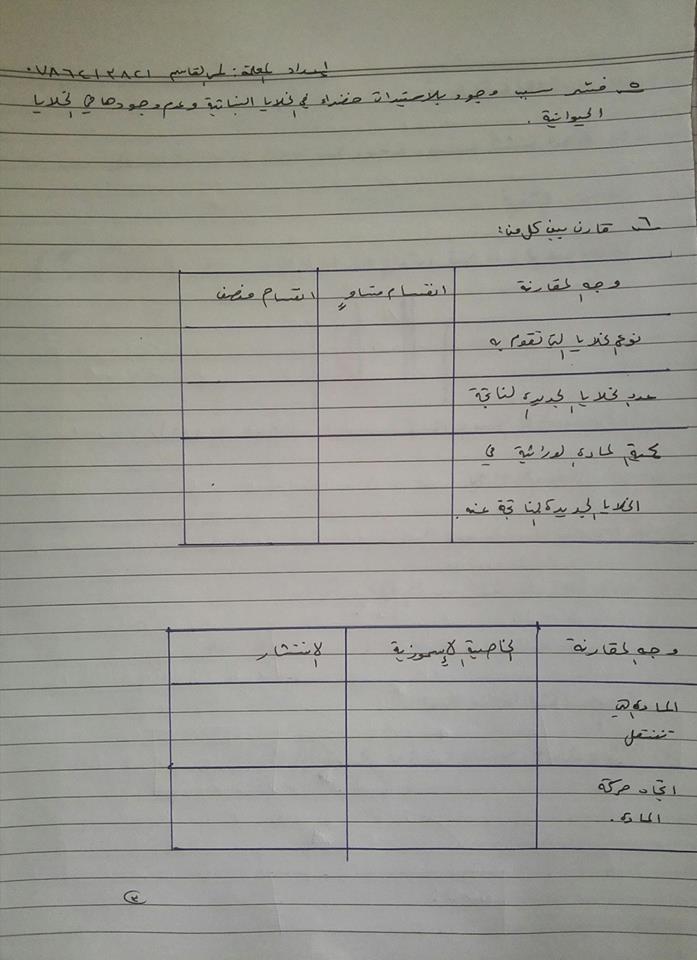 إعداد المعلمة: لمى القاسم ٠٧٨٦٤١٣٨٢١
٥- فسّر سبب وجود بلاستيدات خضراء في الخلايا النباتية وعدم وجودها في الخلايا
الحيوانية .
٦- قارن بين كل من:
وجه المقارنة انقسام متساوٍ انقسام منصف
نوع الخلايا التي تقوم به
عدد الخلايا الجديدة الناتجة
كمية المادة الوراثية في
الخلايا الجديدة الناتجة عنه.
وجه المقارنة الخاصية الإسموزية الانتشار
المادة التي
تنتقل
اتجاه حركة
المادة.
٣